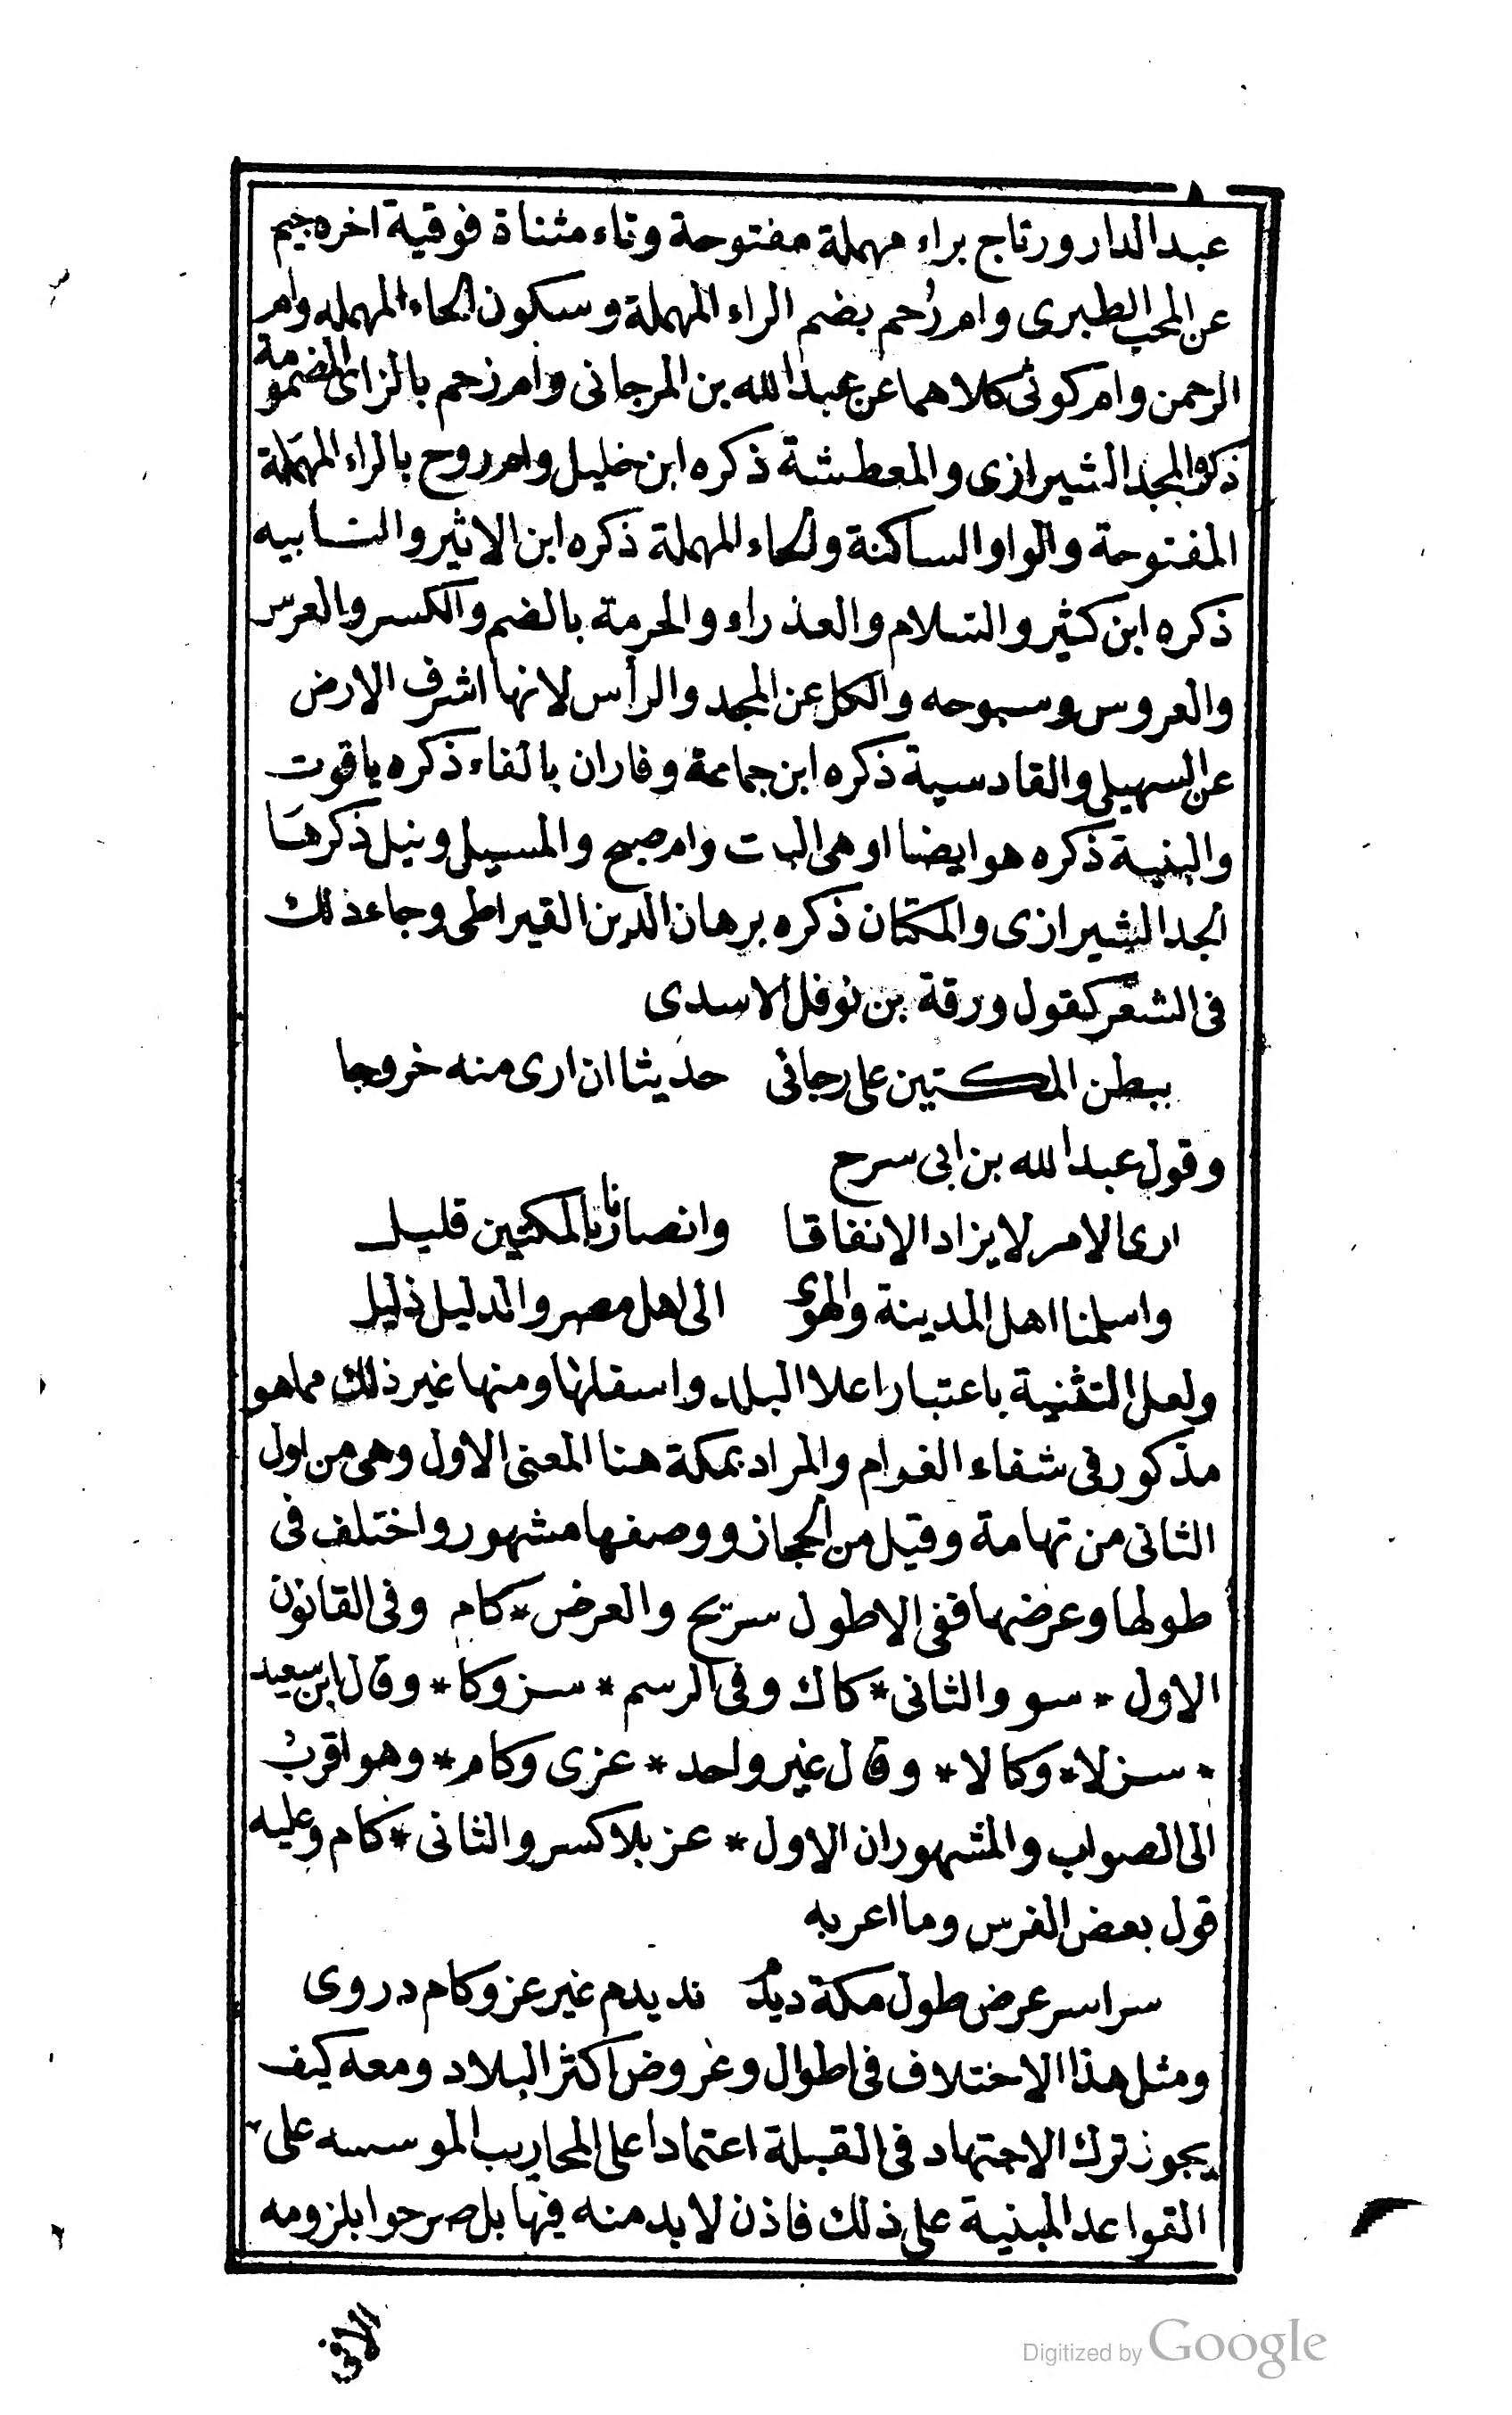 عبد الدار ورتاج براء مهملة مفتوحة وتاء مثناة فوقية اخره جيم
عن المحب الطبرى وام رُحم بضم الراء المهملة وسكون الحاء المهمله وام
الرحمن وام كوثى كلاهما عن عبد الله بن المرجانى وام زحم بالزاى المضمومة
ذكره المجد الشيرازى والمعطشة ذكره ابن خليل وام روح بالراء المهملة
المفتوحة والواو الساكنة والحاء المهملة ذكره ابن الاثير والنسابيه
ذكره ابن كثير والسلام والعذراء والحرمة بالضم والكسر والعرس
والعروس وسبوحه والكل عن المجد والرأس لانها اشرف الارض
عن السهيلى والقادسية ذكره ابن جماعة وفاران بالفاء ذكره ياقوت
والبنية ذكره هو ايضا او هى البت وام صبح والمسيل ونيل ذكرها
المجد الشيرازى والمكتان ذكره برهان الدين القيراطى وجاء ذلك
فى الشعر كقول ورقة بن نوفل الاسدى
ببطن المكتين على رجائى حديثا ان ارى منه خروجا
وقول عبد الله بن ابى سرح
ارى الامر لا يزاد الا نفاقا وانصارنا بالمكتين قليل
واسلمنا اهل المدينة والهوى الى اهل مصر والدليل ذليل
ولعل التثنية باعتبار اعلا البلد واسفلها ومنها غير ذلك مما هو
مذكور فى شفاء الغرام والمراد بمكة هنا المعنى الاول وهى من اول
الثانى من تهامة وقيل من الحجاز ووصفها مشهور واختلف فى
طولها وعرضها ففى الاطول سزيح والعرض * كام وفى القانون
الاول * سو والثانى * كاك وفى الرسم * سز وكا * وقال ابن سعيد
* سز لا * وكا لا * وقال غير واحد * عزى وكام * وهو اقربُ
الى الصواب والمشهور ان الاول * عز بلا كسر والثانى * كام وعليه
قول بعض الفرس وما اعربه
سراسر عرض طول مكة ديدم نديدم غير عز وكام در وى
ومثل هذا الاختلاف فى اطوال وعروض اكثر البلاد ومعه كيف
يجوز ترك الاجتهاد فى القبلة اعتمادا على المحاريب الموسسه على
القواعد المبنية على ذلك فاذن لا بد منه فيها بل صرحوا بلزومه
Digitized by Google